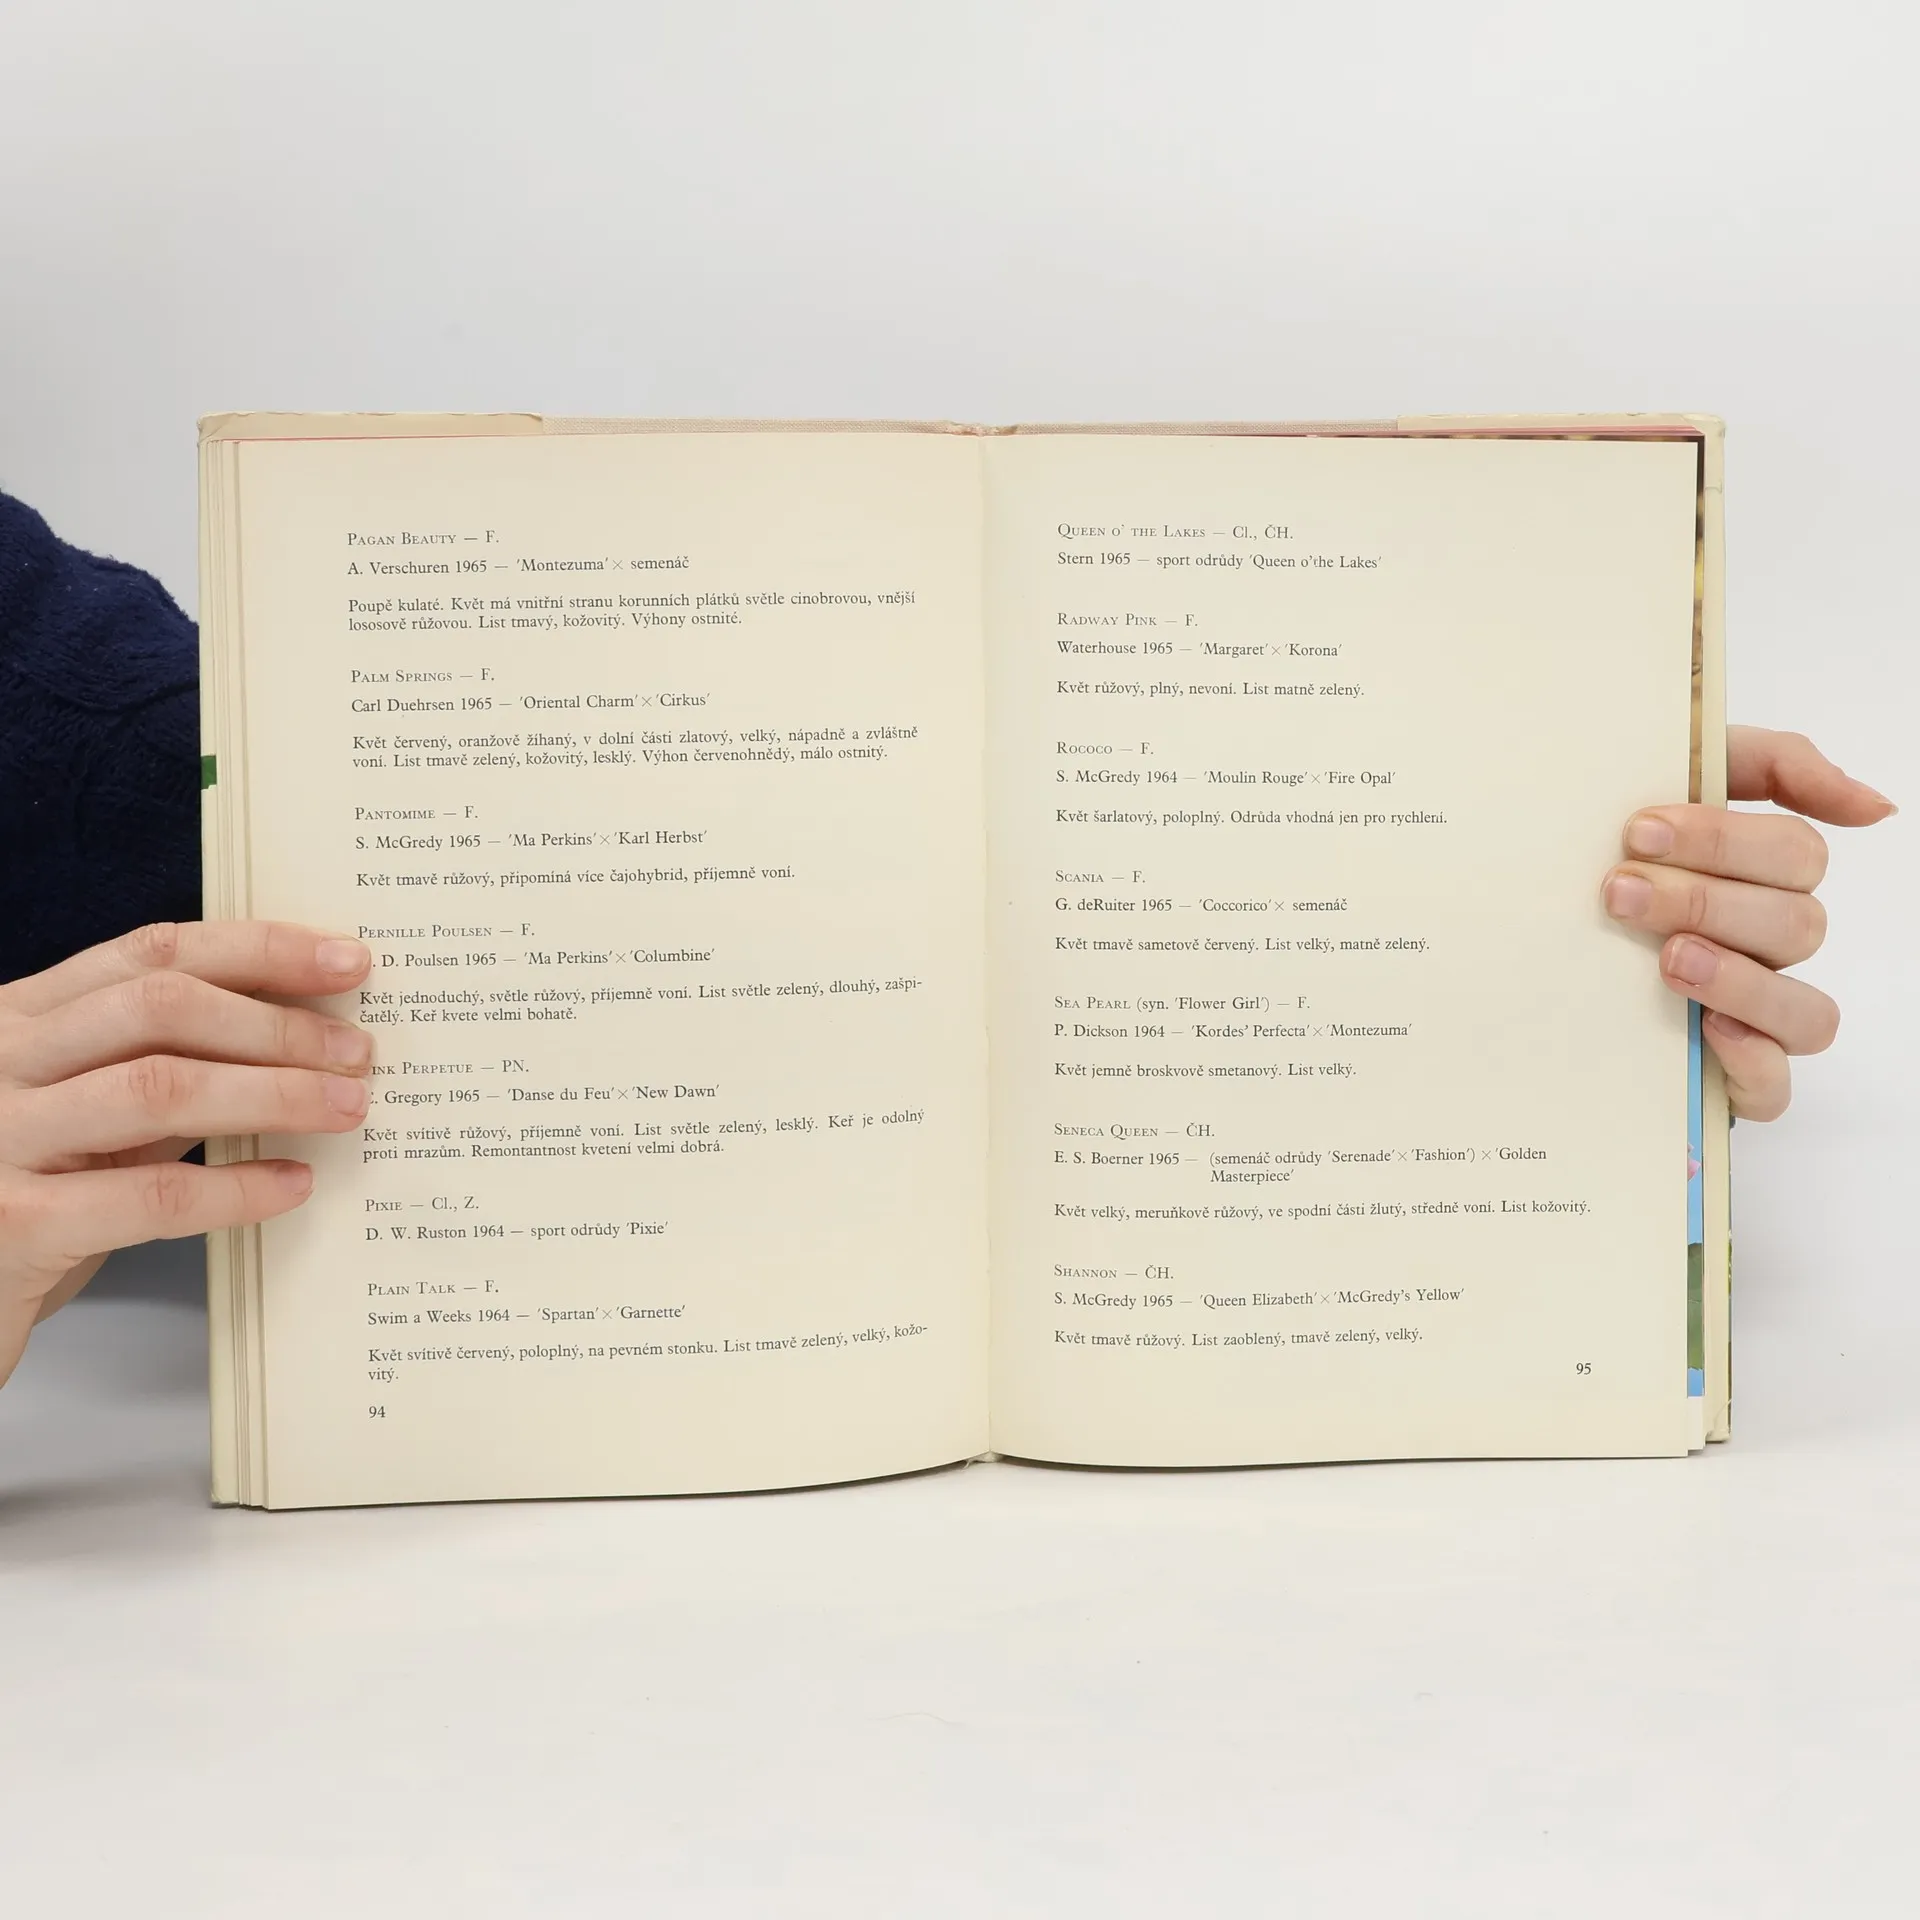 PAGAN BEAUTY — F.
A. Verschuren 1965 — 'Montezuma' × semenáč
Poupě kulaté. Květ má vnitřní stranu korunních plátků světle cinobrovou, vnější
lososově růžovou. List tmavý, kožovitý. Výhony ostnité.
PALM SPRINGS — F.
Carl Duehrsen 1965 — 'Oriental Charm' × 'Cirkus'
Květ červený, oranžově žíhaný, v dolní části zlatový, velký, nápadně a zvláštně
voní. List tmavě zelený, kožovitý, lesklý. Výhon červenohnědý, málo ostnitý.
PANTOMIME — F.
S. McGredy 1965 — 'Ma Perkins' × 'Karl Herbst'
Květ tmavě růžový, připomíná více čajohybrid, příjemně voní.
PERNILLE POULSEN — F.
. D. Poulsen 1965 — 'Ma Perkins' × 'Columbine'
Květ jednoduchý, světle růžový, příjemně voní. List světle zelený, dlouhý, zašpi-
čatělý. Keř kvete velmi bohatě.
INK PERPETUE — PN.
. Gregory 1965 — 'Danse du Feu' × 'New Dawn'
Květ svítivě růžový, příjemně voní. List světle zelený, lesklý. Keř je odolný
proti mrazům. Remontantnost kvetení velmi dobrá.
PIXIE — Cl., Z.
D. W. Ruston 1964 — sport odrůdy 'Pixie'
PLAIN TALK — F.
Swim a Weeks 1964 — 'Spartan' × 'Garnette'
Květ svítivě červený, poloplný, na pevném stonku. List tmavě zelený, velký, kožo-
vitý.
94
QUEEN O' THE LAKES — Cl., ČH.
Stern 1965 — sport odrůdy 'Queen o'the Lakes'
RADWAY PINK — F.
Waterhouse 1965 — 'Margaret' × 'Korona'
Květ růžový, plný, nevoní. List matně zelený.
ROCOCO — F.
S. McGredy 1964 — 'Moulin Rouge' × 'Fire Opal'
Květ šarlatový, poloplný. Odrůda vhodná jen pro rychlení.
SCANIA — F.
G. deRuiter 1965 — 'Coccorico' × semenáč
Květ tmavě sametově červený. List velký, matně zelený.
SEA PEARL (syn. 'Flower Girl') — F.
P. Dickson 1964 — 'Kordes' Perfecta' × 'Montezuma'
Květ jemně broskvově smetanový. List velký.
SENECA QUEEN — ČH.
E. S. Boerner 1965 — (semenáč odrůdy 'Serenade' × 'Fashion') × 'Golden
Masterpiece'
Květ velký, meruňkově růžový, ve spodní části žlutý, středně voní. List kožovitý.
SHANNON — ČH.
S. McGredy 1965 — 'Queen Elizabeth' × 'McGredy's Yellow'
Květ tmavě růžový. List zaoblený, tmavě zelený, velký.
95